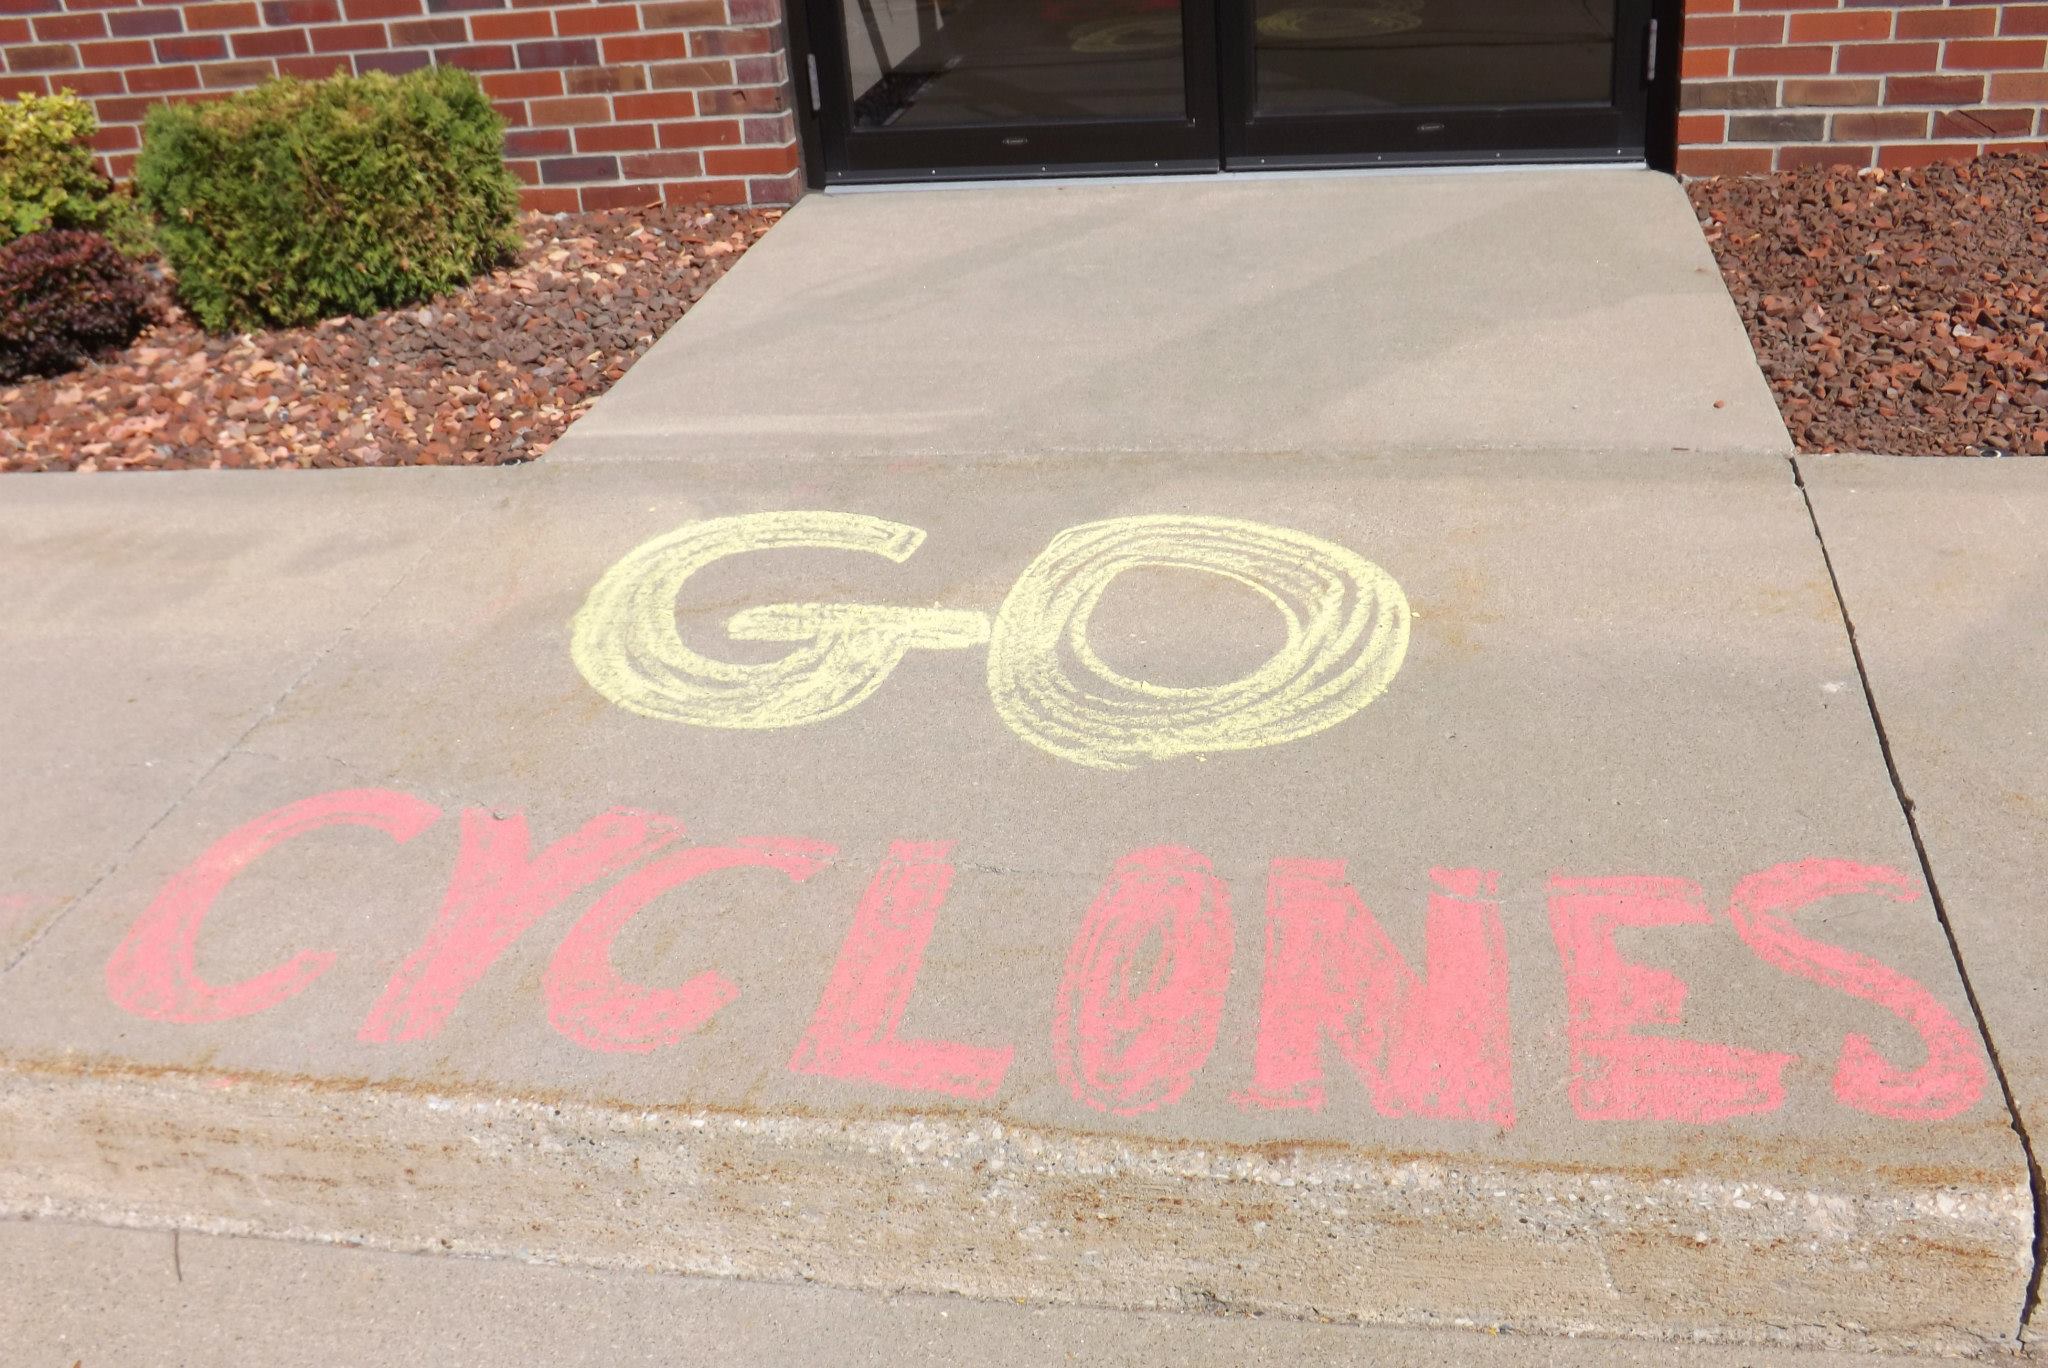 GO
CYCLONES